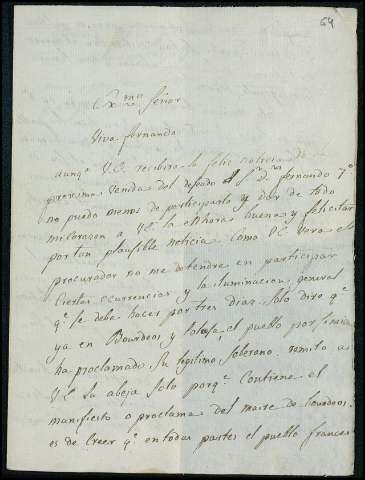 64
Exmo Señor
Viva fernando
aunqe VE recibira la feliz noticia de
proxima venida del deseado Sr Dn fernando 7o
no puedo menos de participarlo y dar de todo
mi corazon a VE la enhora buena y felicitar
por tan plausible noticia Como VE Vera el
procurador no me detendre en participar
Ciertas ocurrencias y la iluminacion general
qe se debe hacer por tres dias solo diro qe
ya en Bourdeos, y tolosa, el pueblo por
ha proclamado, su legitimo, soberano. remito a
VE la abeja solo porqe Contiene el
manifiesto o proclama del maire de bourdeos.
es de Creer qe en todas partes el pueblo frances